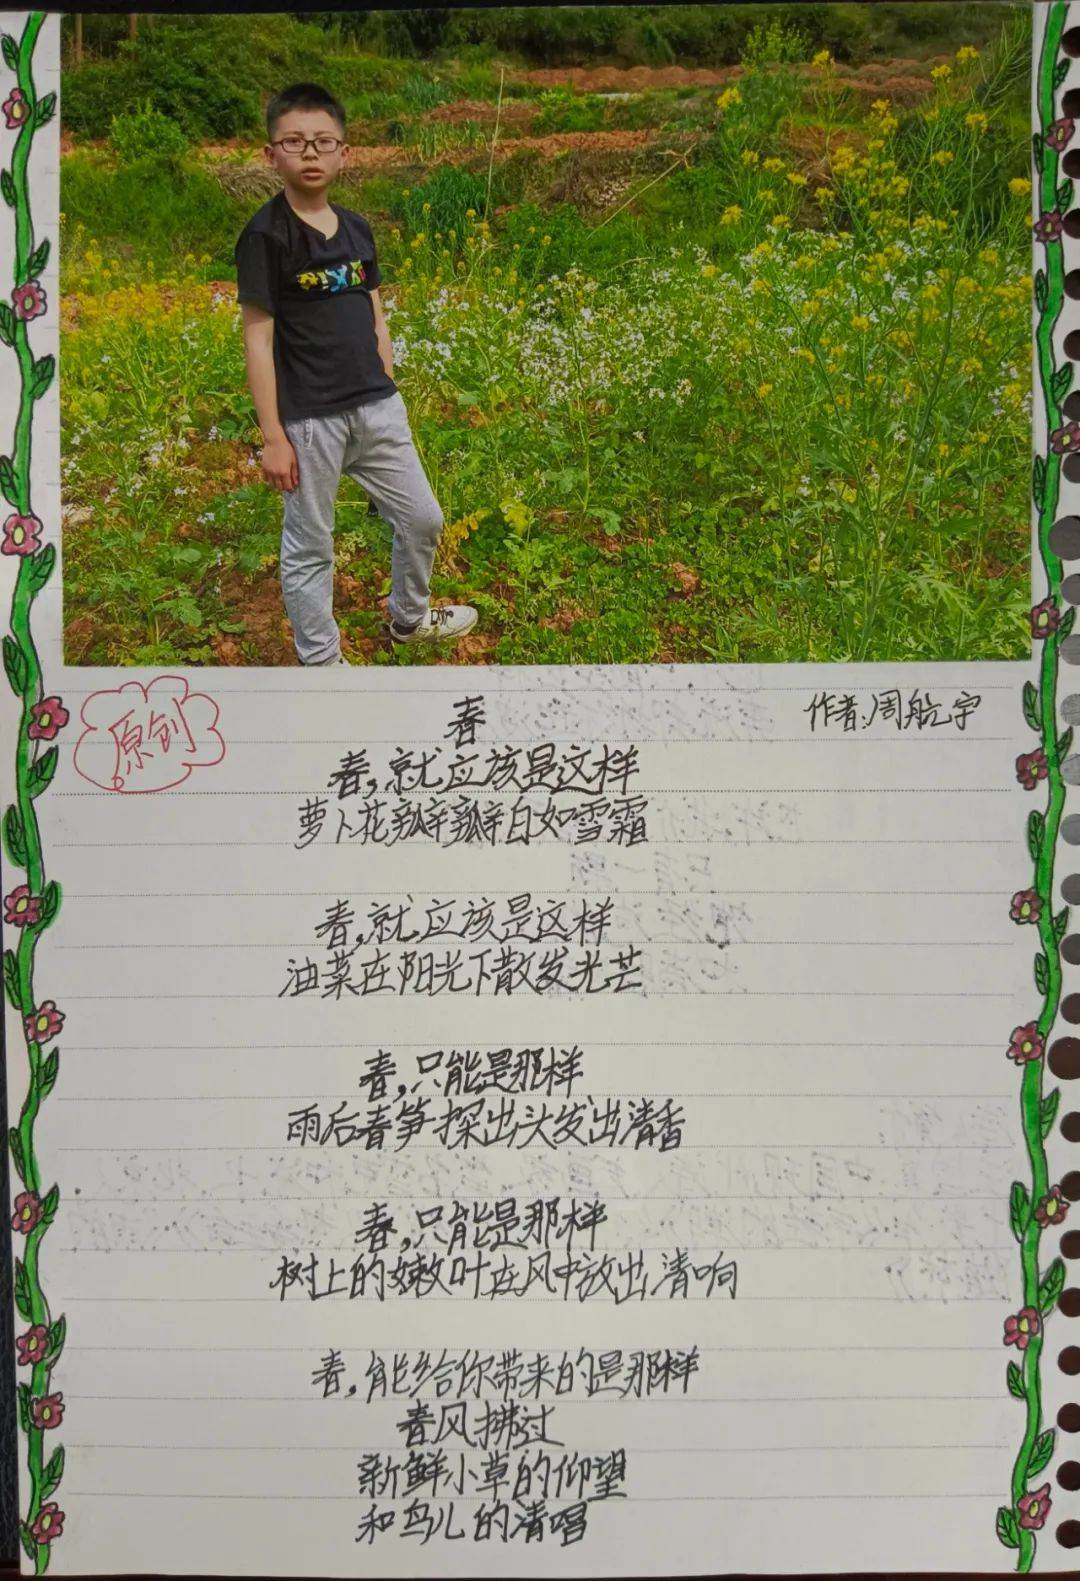 原创
春
作者:周航宇
春,就应该是这样
萝卜花瓣瓣白如雪霜
春,就应该是这样
油菜在阳光下散发光芒
春,只能是那样
雨后春笋探出头发出清香
春,只能是那样
树上的嫩叶在风中放出清响
春,能给你带来的是那样
春风拂过
新鲜小草的仰望
和鸟儿的清唱